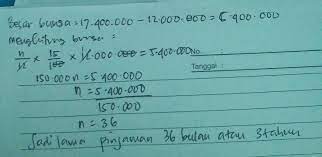 Besar bunga = 17.400.000 - 12.000.000 = 5.400.000
Menghitung bunga =
n/12 × 15/100 × 12.000.000 = 5.400.000
No
Tanggal :
150.000n = 5.400.000
n = 5.400.000
150.000
n = 36
Jadi lama pinjaman 36 bulan atau 3 tahun